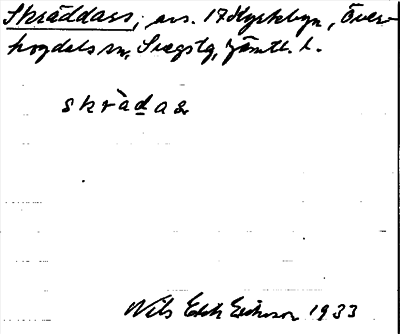 Skräddars, ers. 17 Kyrkbyn, Över-
hogdals sn, Svegs tg, Jämtl. l.
skràdas
Nils Erik Eriksson 1933